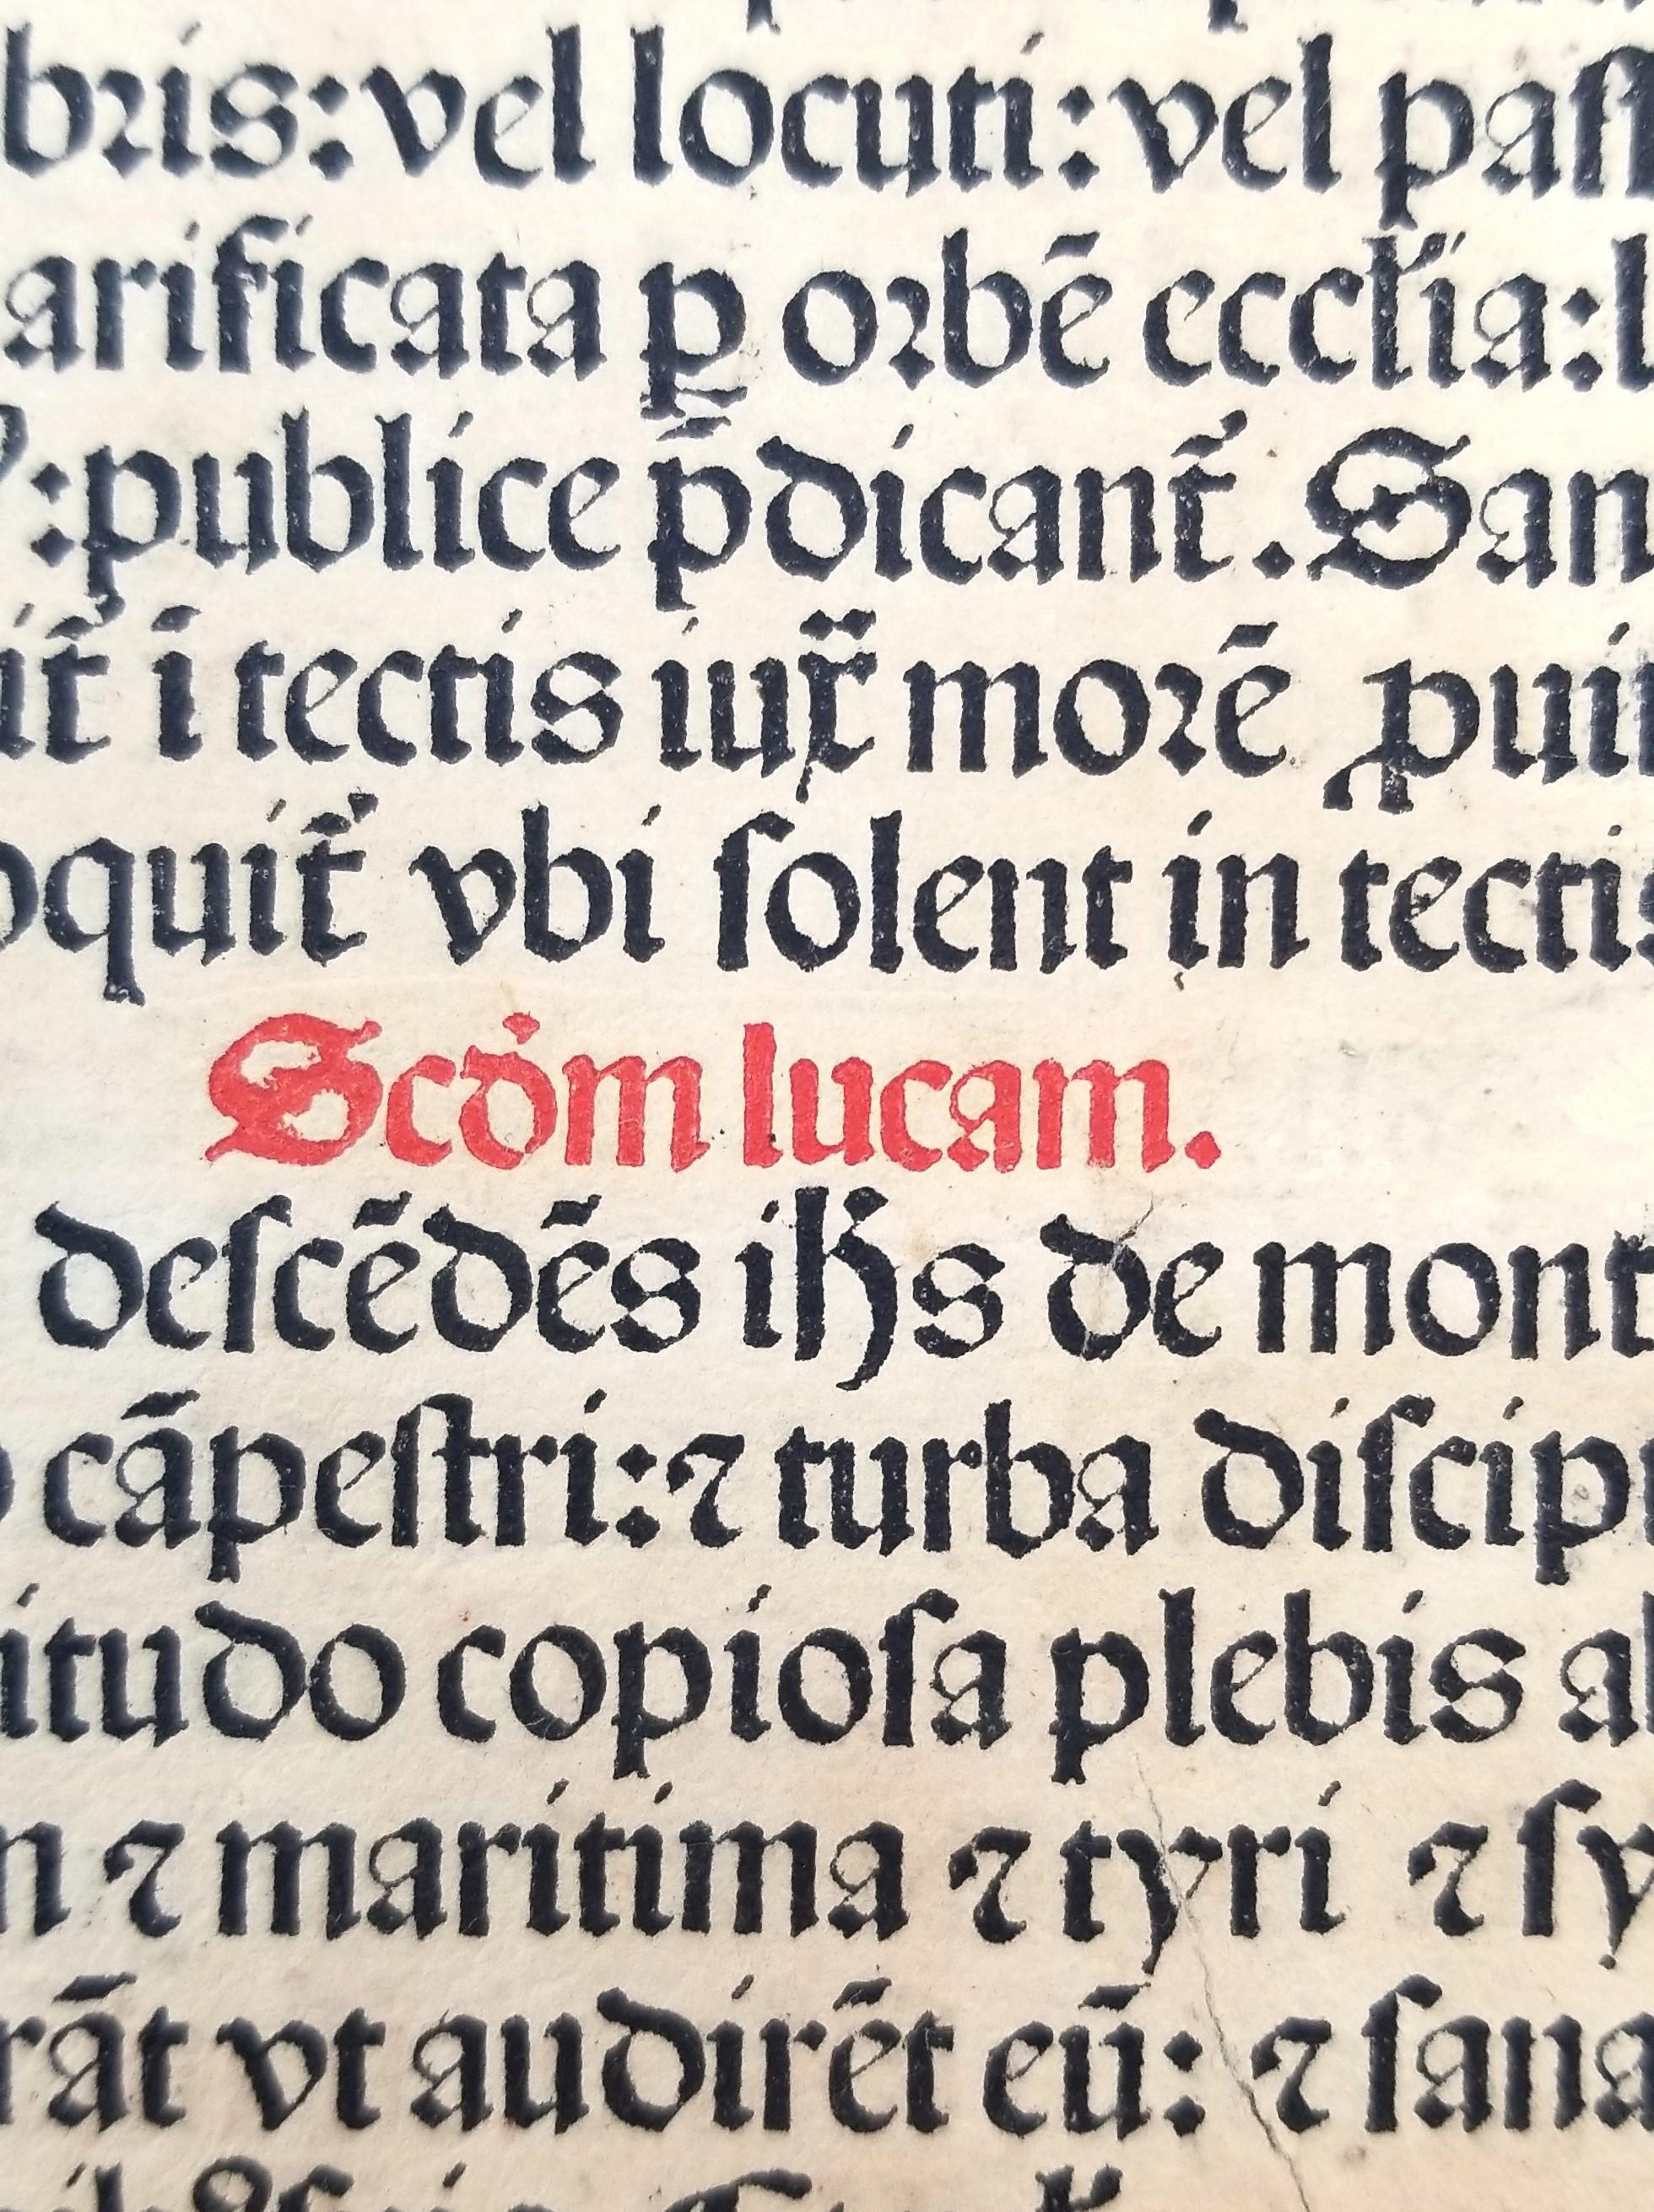 bꝛis: vel locuti: vel paſſ
arificata ꝑ oꝛbē eccl'ia: l
: publice p̄dicant̄. San
it̄ ī tectis iuxͣ moꝛē ꝓuin
oquit̄ vbi ſolent in tectis
Scd'm lucam.
deſcēdēs ih̄s de mont
cāpeſtri: ⁊ turba diſcip
itudo copioſa plebis ab
n ⁊ maritima ⁊ tyri ⁊ ſy
rāt vt audirēt eū: ⁊ ſana